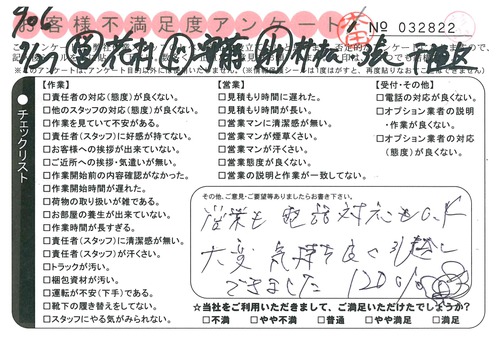 906
お客様不満足度アンケート
№ 032822
チェックリスト
【作業】
□責任者の対応(態度)が良くない。
□他のスタッフの対応(態度)が良くない。
□作業を見ていて不安がある。
□責任者(スタッフ)に好感が持てない。
□お客様への挨拶が出来ていない。
□ご近所への挨拶・気遣いが無い。
□作業開始前の内容確認がなかった。
□作業開始時間が遅れた。
□荷物の取り扱いが雑である。
□お部屋の養生が出来ていない。
□作業時間が長すぎる。
□責任者(スタッフ)に清潔感が無い。
□責任者(スタッフ)が汗くさい。
□トラックが汚い。
□梱包資材が汚い。
□運転が不安(下手)である。
□靴下の履き替えをしてない。
□スタッフにやる気がみられない。
【営業】
□見積もり時間に遅れた。
□見積もり時間が長い。
□営業マンに清潔感が無い。
□営業マンが煙草くさい。
□営業マンが汗くさい。
□営業態度が良くない。
□営業の説明と作業が一致してない。
【受付・その他】
□電話の対応が良くない。
□オプション業者の説明
・作業が良くない。
□オプション業者の対応
(態度)が良くない。
その他、ご意見・ご要望等ありましたらお書き下さい。
営業も電話対応もOK
大変気持ち良く引越し
できました 120%
★当社をご利用いただきまして、ご満足いただけたでしょうか?
□不満 □やや不満 □普通 □やや満足 □満足